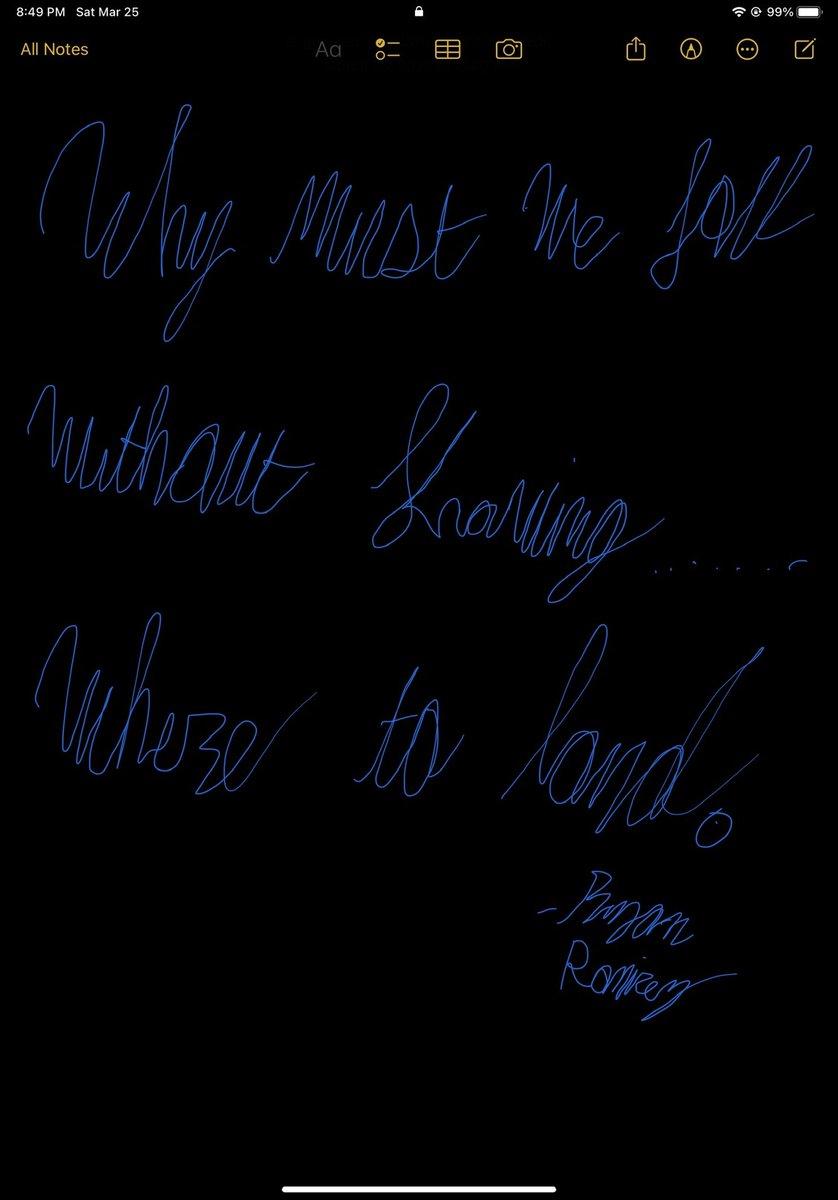 8:49 PM Sat Mar 25 99%
All Notes Aa
Why must we fall
without knowing.......
Where to land.
- Bryan
Ramirez